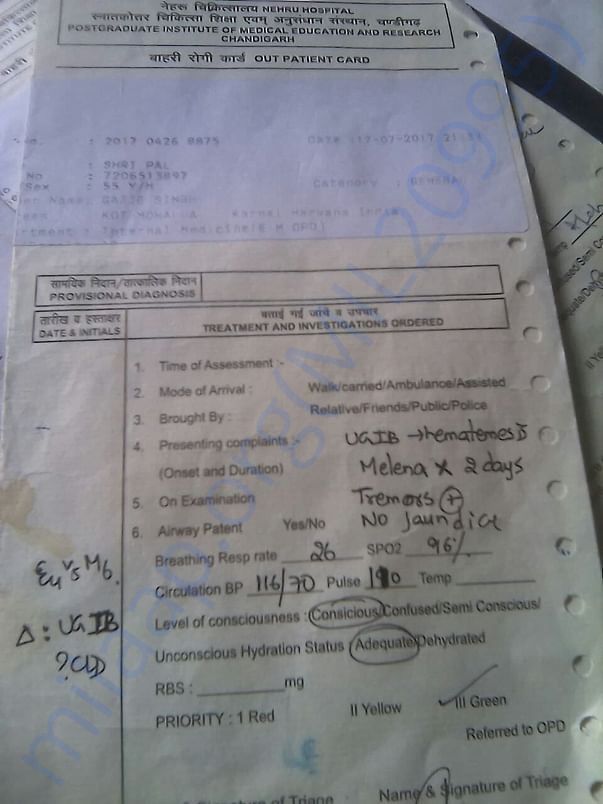 नेहरु चिकित्सालय NEHRU HOSPITAL
स्नातकोत्तर चिकित्सा शिक्षा एवम् अनुसंधान संस्थान, चण्डीगढ़
POSTGRADUATE INSTITUTE OF MEDICAL EDUCATION AND RESEARCH
CHANDIGARH
बाहरी रोगी कार्ड OUT PATIENT CARD
: 2017 0426 8875 Date :17-07-2017
: SHRI PAL
No : 7206513897
Sex : 55 Y/M Category :
Name: SINGH
KOT Karnal Haryana India
: Internal Medicine(E M OPD)
सामयिक निदान/तात्कालिक निदान
PROVISIONAL DIAGNOSIS
तारीख व हस्ताक्षर
DATE & INITIALS
बताई गई जांचे व उपचार
TREATMENT AND INVESTIGATIONS ORDERED
1. Time of Assessment :-
2. Mode of Arrival : Walk/carried/Ambulance/Assisted
3. Brought By : Relative/Friends/Public/Police
4. Presenting complaints :- UGIB → Hematemesis
(Onset and Duration) Melena x 2 days
5. On Examination Tremors +
6. Airway Patent Yes/No No Jaundice
Breathing Resp rate 26 SPO2 96%
Circulation BP 116/70 Pulse Temp
Level of consciousness : Consicious/Confused/Semi Conscious/
Unconscious Hydration Status Adequate/Dehydrated
RBS : mg
PRIORITY : 1 Red II Yellow III Green
Referred to OPD
Name & Signature of Triage
E4 V5 M6.
Δ: UGIB
? CLD
milaap.org(MIL20995)